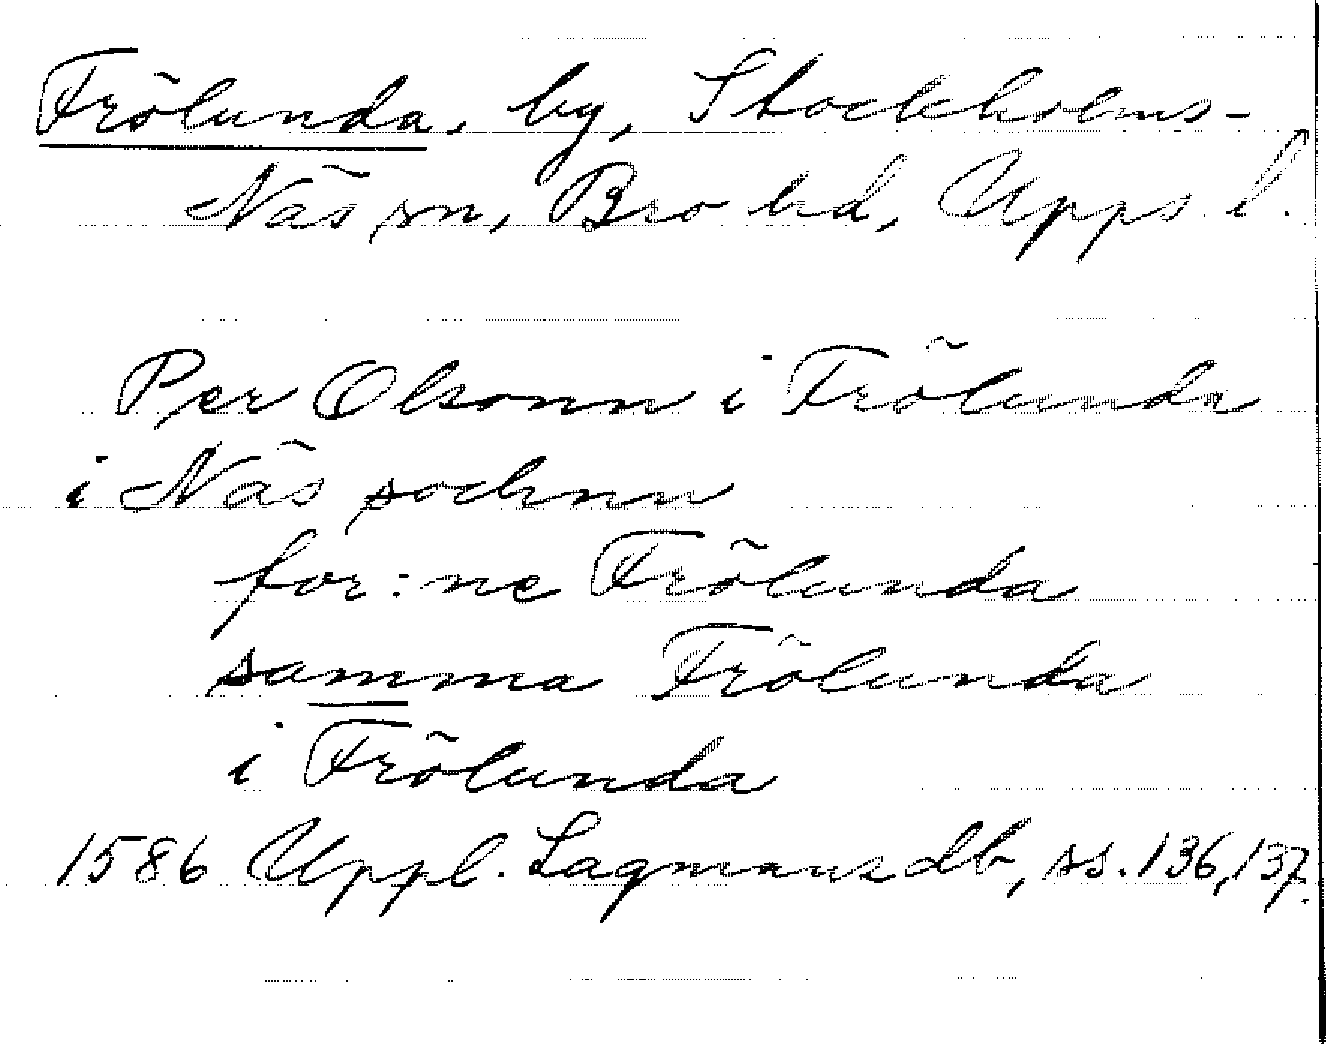 Frölunda, by, Stockholms-
Näs sn, Bro hd, Upps. l.
Per Olsonn i Frölunda
i Näs sochnn
for:ne Frölunda
samma Frölunda
i Frölunda
1586 Uppl. Lagmansdb, ss. 136, 137.